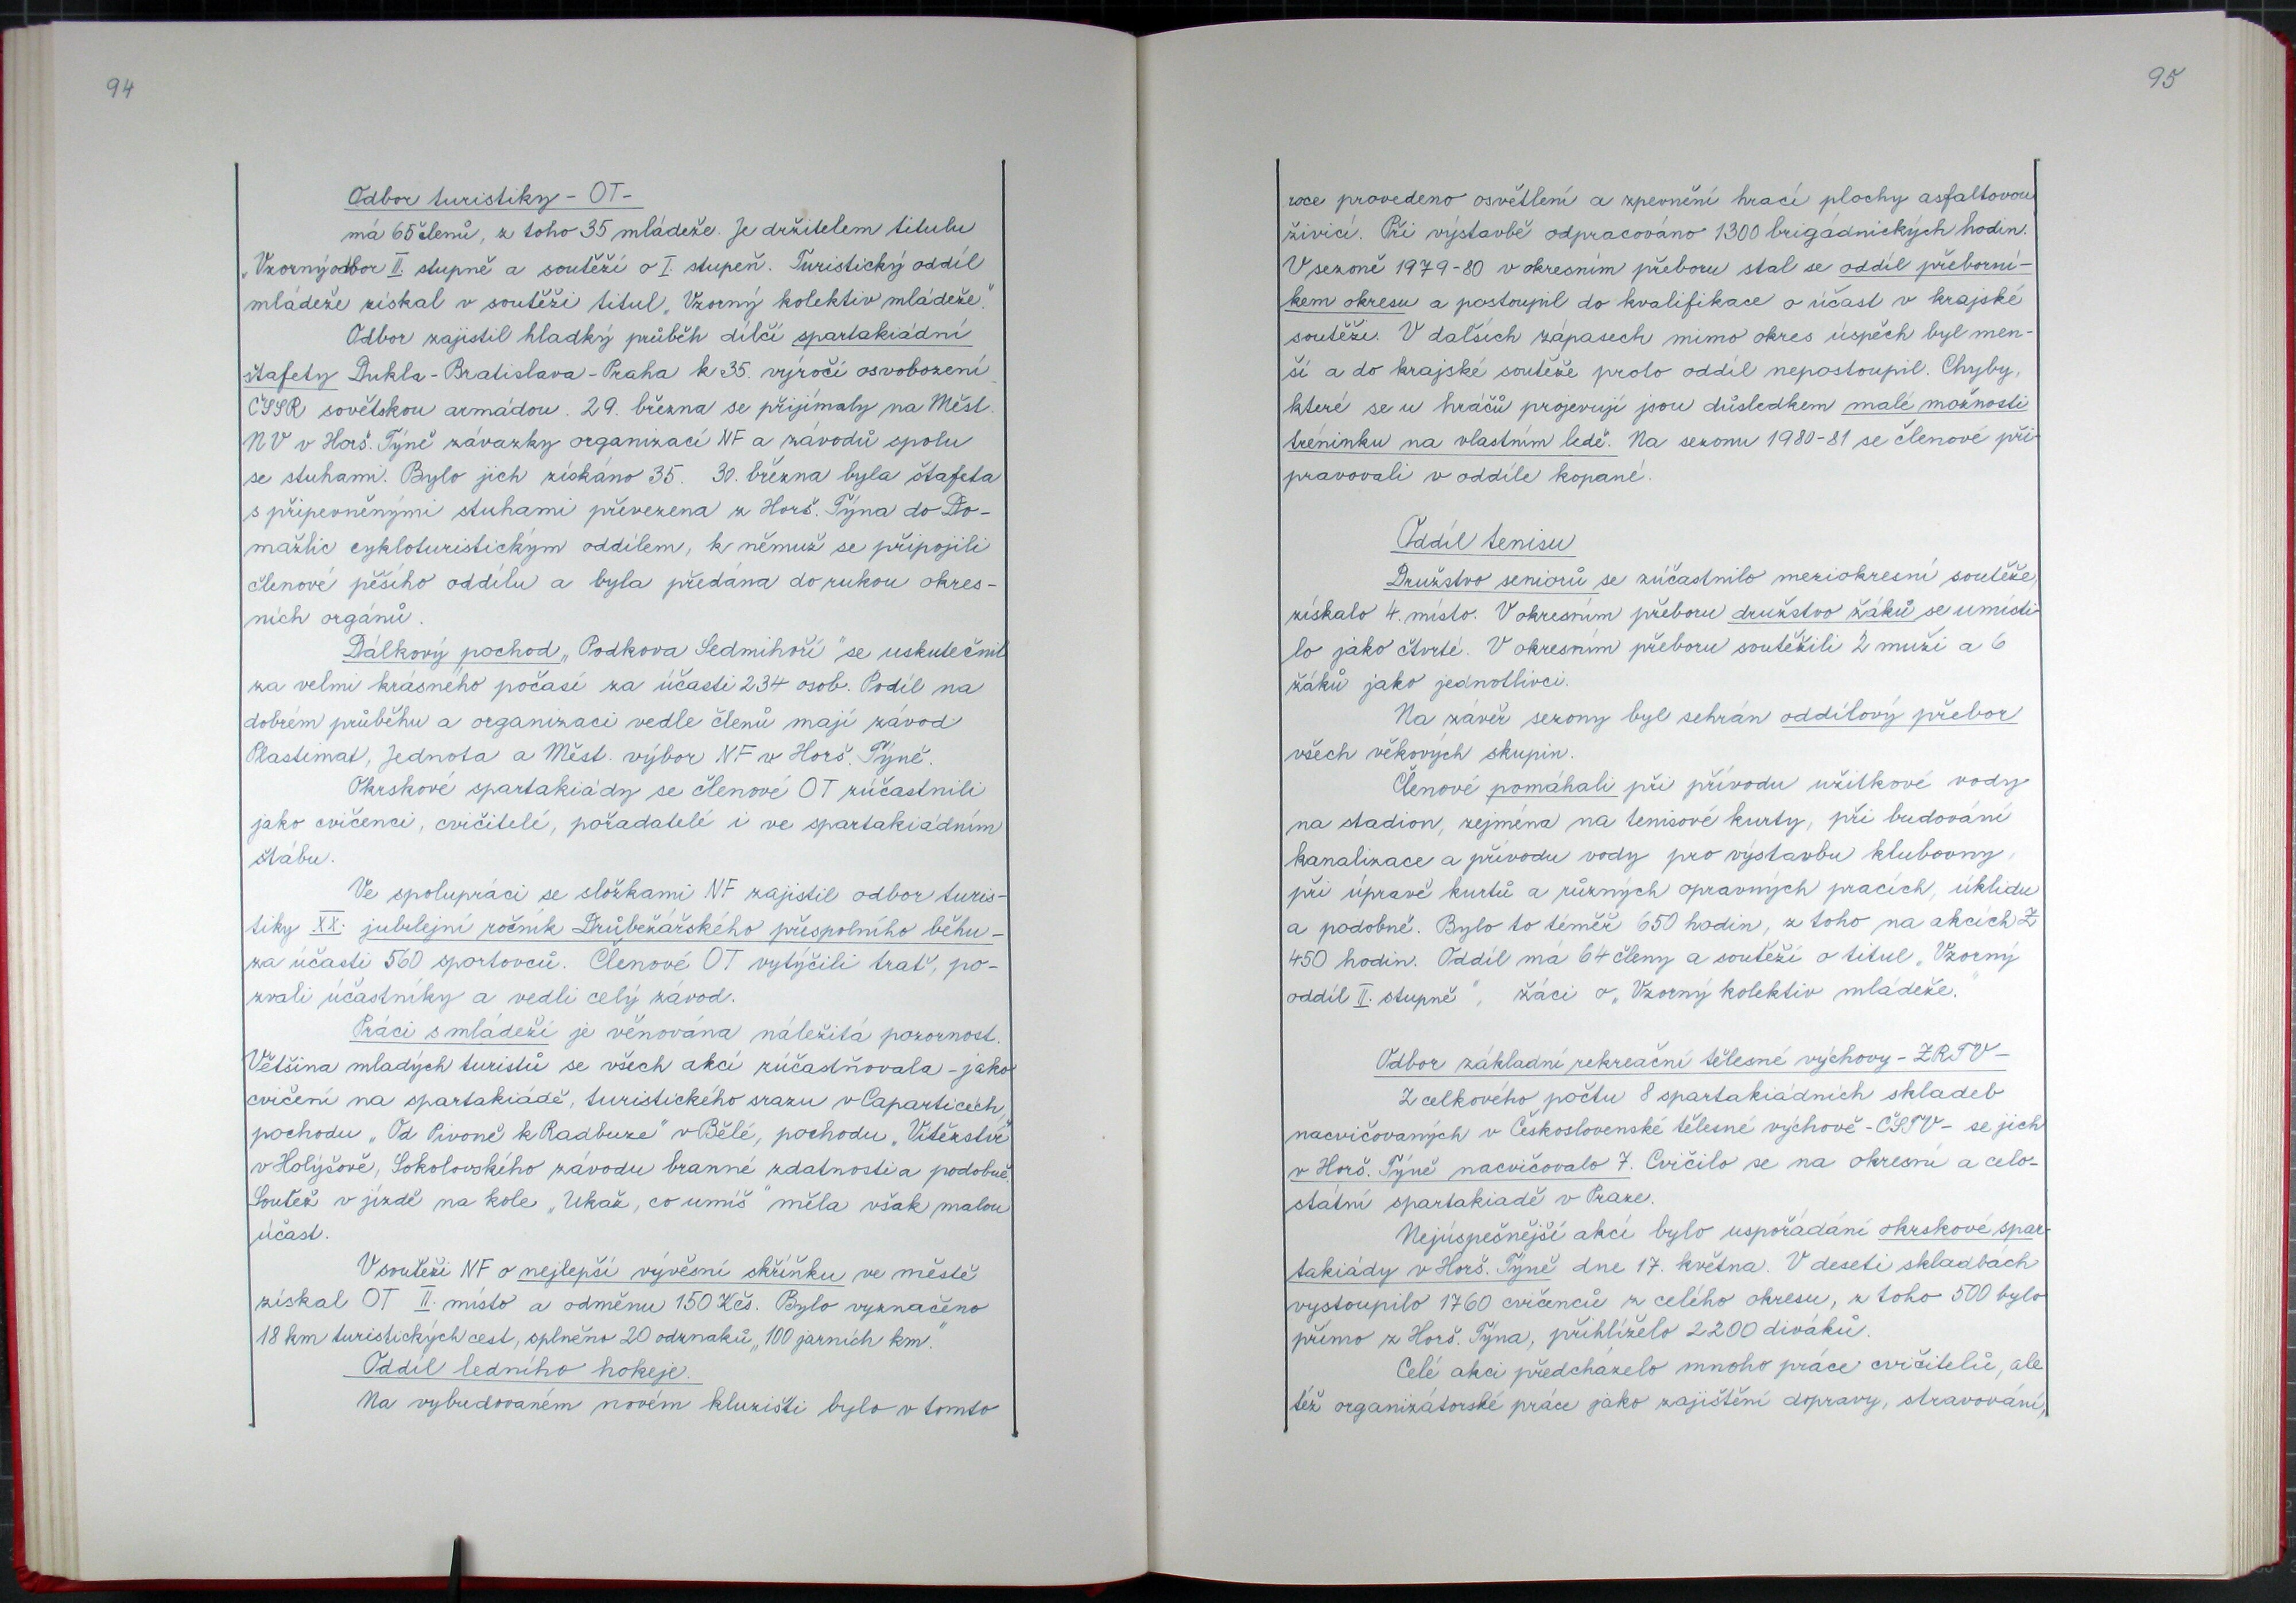 94
Odbor turistiky - OT -
má 65 členů, z toho 35 mládeže. Je držitelem titulu
„Vzorný odbor II. stupně a soutěží o I. stupeň. Turistický oddíl
mládeže získal v soutěži titul „Vzorný kolektiv mládeže."
Odbor zajistil hladký průběh dílčí spartakiádní
štafety Dukla - Bratislava - Praha k 35. výročí osvobození
ČSSR sovětskou armádou. 29. března se přijímaly na Měst.
NV v Horš. Týně závazky organizací NF a závodů spolu
se stuhami. Bylo jich získáno 35. 30. března byla štafeta
s připevněnými stuhami převezena z Horš. Týna do Do-
mažlic cykloturistickým oddílem, k němuž se připojili
členové pěšího oddílu a byla předána do rukou okres-
ních orgánů.
Dálkový pochod „Podkova Sedmihoří" se uskutečnil
za velmi krásného počasí za účasti 234 osob. Podíl na
dobrém průběhu a organizaci vedle členů mají závod
Plastimat, Jednota a Měst. výbor NF v Horš. Týně.
Okrskové spartakiády se členové OT zúčastnili
jako cvičenci, cvičitelé, pořadatelé i ve spartakiádním
štábu.
Ve spolupráci se složkami NF zajistil odbor turis-
tiky XX. jubilejní ročník Drůbežářského přespolního běhu -
za účasti 560 sportovců. Členové OT vytýčili trať, po-
zvali účastníky a vedli celý závod.
Práci s mládeží je věnována náležitá pozornost.
Většina mladých turistů se všech akcí zúčastňovala - jako
cvičení na spartakiádě, turistického srazu v Caparticích,
pochodu „Od Pivoně k Radbuze" v Bělé, pochodu „Vítězství"
v Holýšově, Sokolovského závodu branné zdatnosti a podobně.
Soutěž v jízdě na kole „Ukaž, co umíš" měla však malou
účast.
V soutěži NF o nejlepší vývěsní skříňku ve městě
získal OT II. místo a odměnu 150 Kčs. Bylo vyznačeno
18 km turistických cest, splněno 20 odznaků „100 jarních km."
Oddíl ledního hokeje.
Na vybudovaném novém kluzišti bylo v tomto
95
roce provedeno osvětlení a zpevnění hrací plochy asfaltovou
živicí. Při výstavbě odpracováno 1300 brigádnických hodin.
V sezoně 1979-80 v okresním přeboru stal se oddíl přeborní-
kem okresu a postoupil do kvalifikace o účast v krajské
soutěži. V dalších zápasech mimo okres úspěch byl men-
ší a do krajské soutěže proto oddíl nepostoupil. Chyby,
které se u hráčů projevují jsou důsledkem malé možnosti
tréninku na vlastním ledě. Na sezonu 1980-81 se členové při-
pravovali v oddíle kopané.
Oddíl tenisu
Družstvo seniorů se zúčastnilo meziokresní soutěže,
získalo 4. místo. V okresním přeboru družstvo žáků se umísti-
lo jako čtvrté. V okresním přeboru soutěžili 2 muži a 6
žáků jako jednotlivci.
Na závěr sezony byl sehrán oddílový přebor
všech věkových skupin.
Členové pomáhali při přívodu užitkové vody
na stadion, zejména na tenisové kurty, při budování
kanalizace a přívodu vody pro výstavbu klubovny,
při úpravě kurtů a různých opravných pracích, úklidu
a podobně. Bylo to téměř 650 hodin, z toho na akcích Z
450 hodin. Oddíl má 64 členy a soutěží o titul „Vzorný
oddíl II. stupně", žáci o „Vzorný kolektiv mládeže."
Odbor základní rekreační tělesné výchovy - ZRTV -
Z celkového počtu 8 spartakiádních skladeb
nacvičovaných v Československé tělesné výchově - ČSTV - se jich
v Horš. Týně nacvičovalo 7. Cvičilo se na okresní a celo-
státní spartakiadě v Praze.
Nejúspešnější akcí bylo uspořádání okrskové spar-
takiády v Horš. Týně dne 17. května. V deseti skladbách
vystoupilo 1760 cvičenců z celého okresu, z toho 500 bylo
přímo z Horš. Týna, přihlíželo 2200 diváků.
Celé akci předcházelo mnoho práce cvičitelů, ale
též organizátorské práce jako zajištění dopravy, stravování,